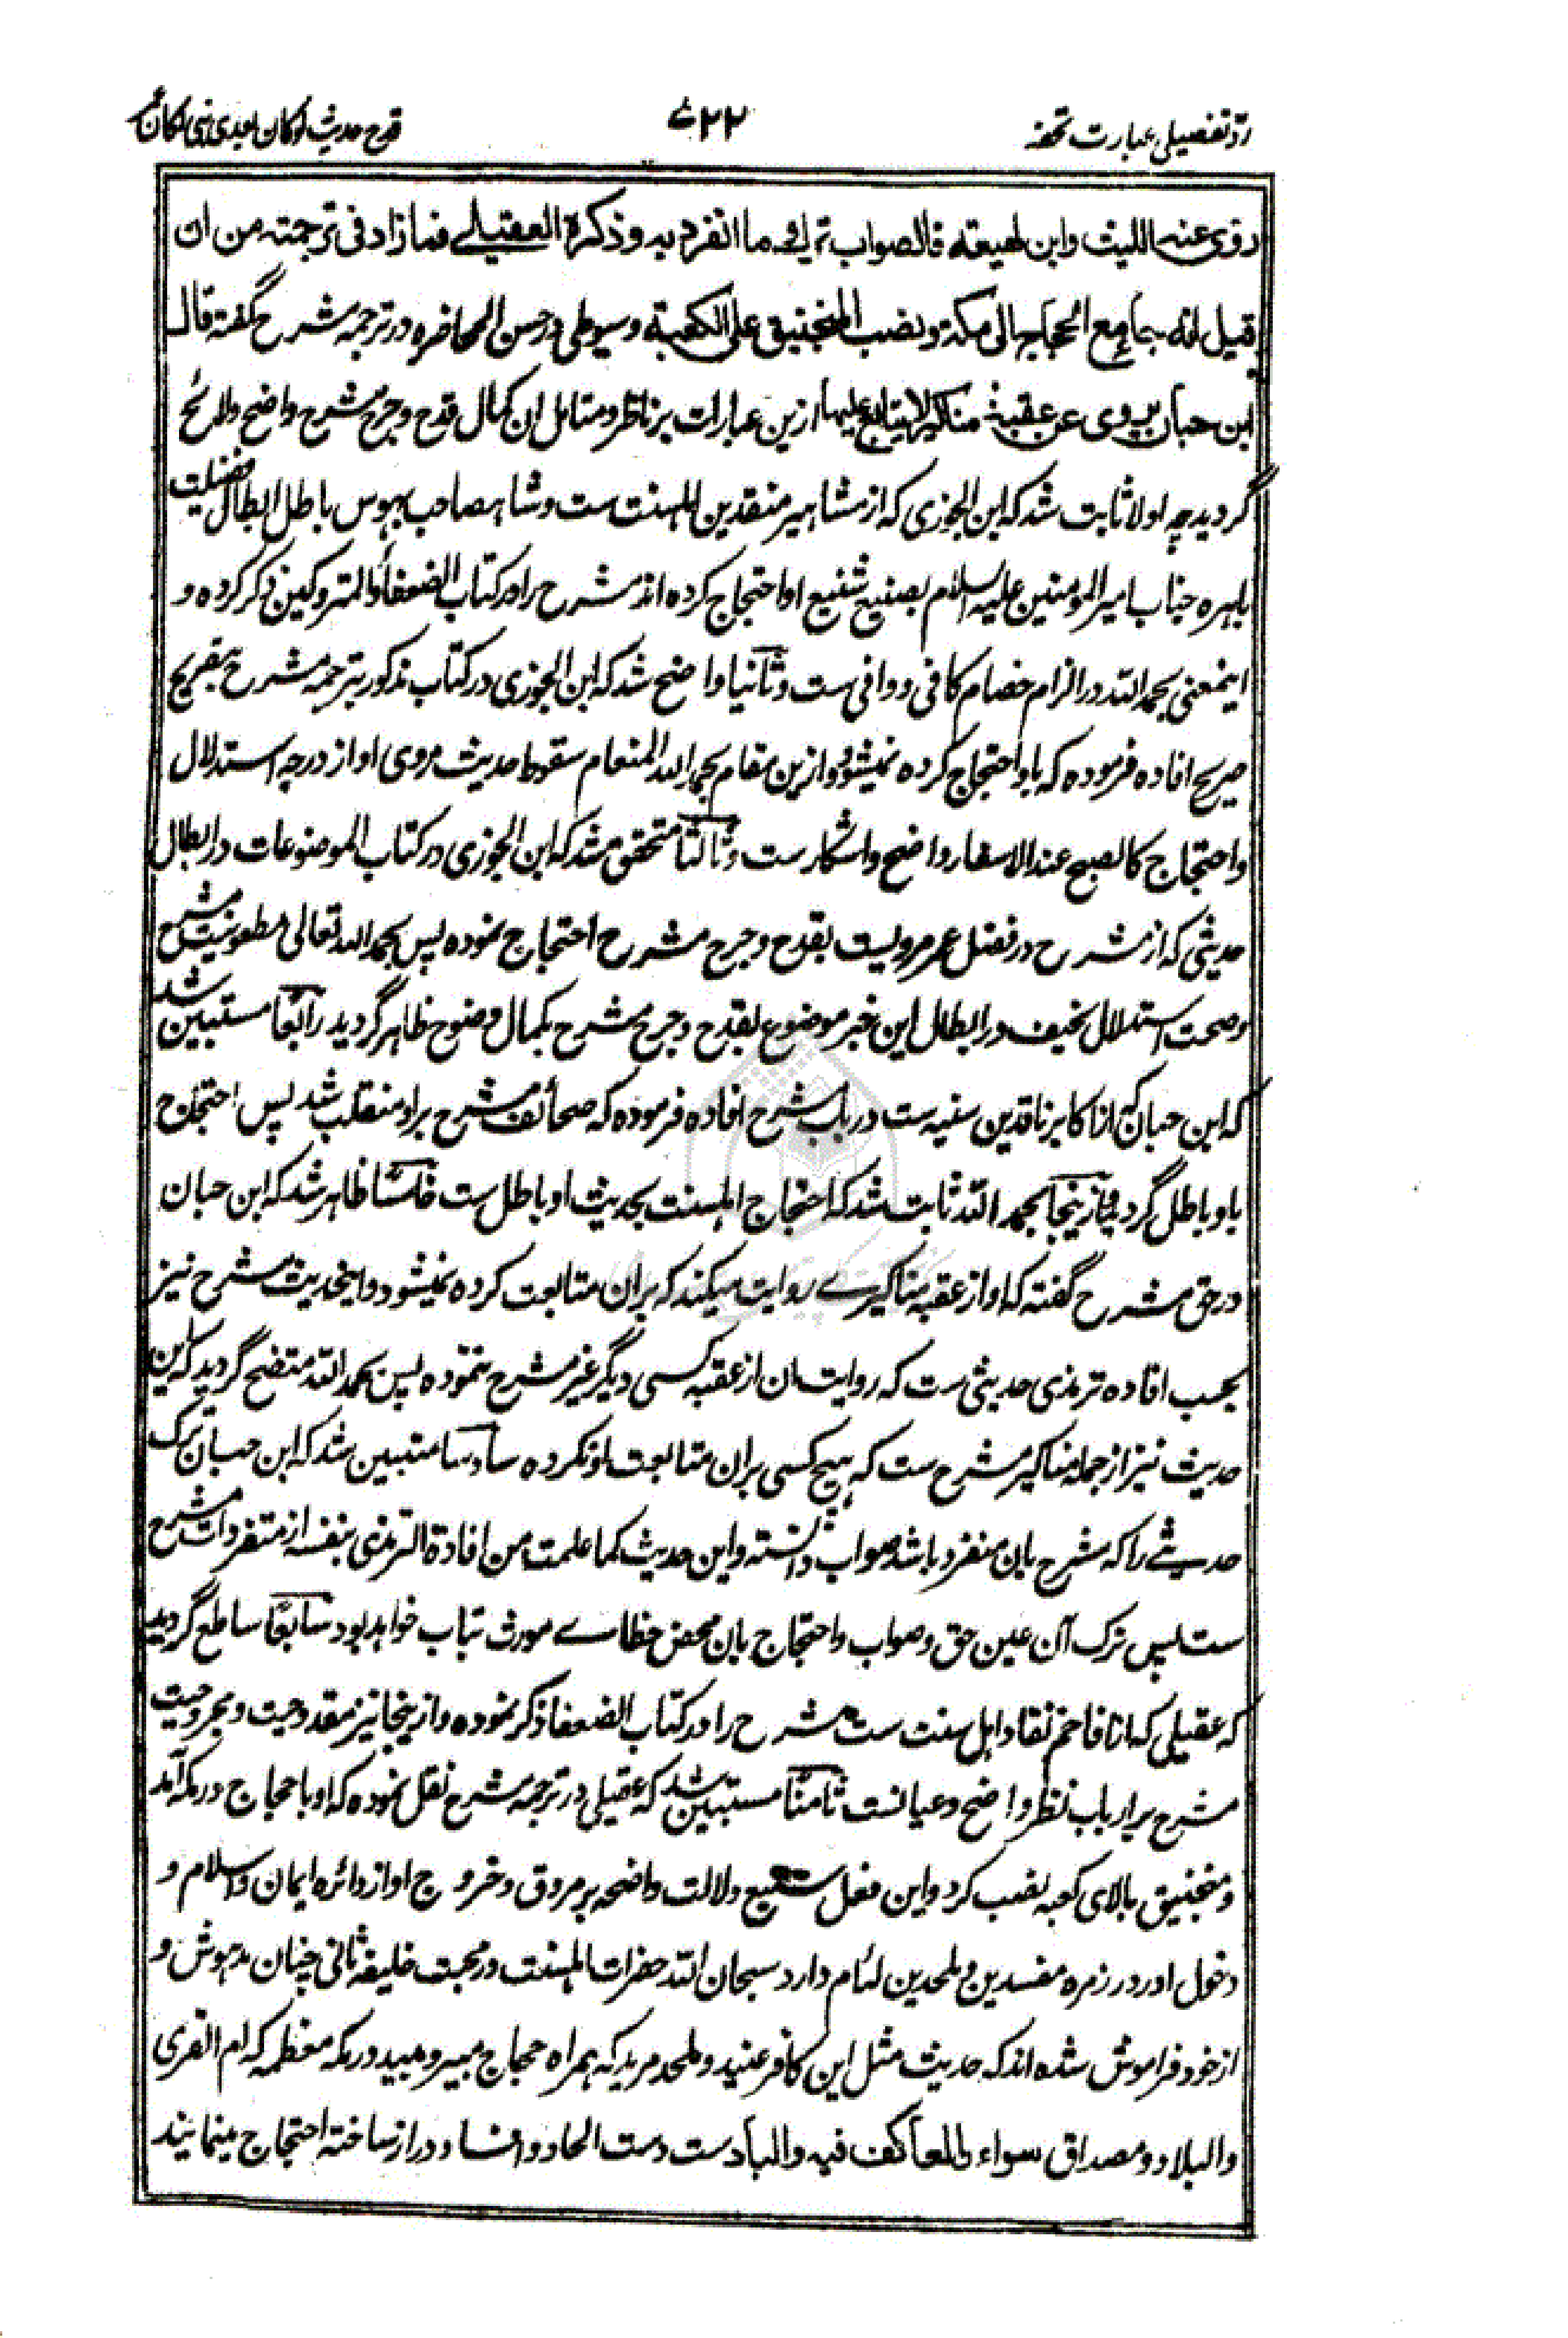 ردّ تفصیلی عبارت تحفه
۷۲۲
قدح حدیث لو کان بعدی نبی لکان عمر
روی عنه اللیث وابن لهیعة فالصواب ترک ما انفرد به وذکرة العقیلے فما زاد فی ترجمته من ان
قیل انه جامع الحجاج الی مکة ونصب المنجنیق علی الکعبة وسیوطی در حسن المحاضره در ترجمه مشرح گفته قال
ابن حبان یروی عن عقبة مناکیر لا یتابع علیها ازین عبارات بر ناظر و متامل ان کمال قدح و جرح مشرح واضح ولائح
گردید چه اولا ثابت شد که ابن الجوزی که از مشاهیر منقدین اهلسنت ست و شاهصاحب بهوس باطل ابطال فضیلت
باهره جناب امیر المومنین علیه السلام بصنیع شنیع او احتجاج کرده اند مشرح را در کتاب الضعفاء والمتروکین ذکر کرده و
اینمعنی بحمد الله در الزام خصام کافی و وافی ست وثانیا واضح شد که ابن الجوزی در کتاب مذکور بترجمه مشرح بتصریح
صریح افاده فرموده که باو احتجاج کرده نمیشود وازین مقام بحمد الله المنعام سقوط حدیث مروی او از درجه استدلال
واحتجاج کالصبح عند الاسفار واضح واشکارست وثالثا متحقق شد که ابن الجوزی در کتاب الموضوعات در ابطال
حدیثی که از مشرح در فضل عمر مرویست بقدح و جرح مشرح احتجاج نموده پس بحمد الله تعالی مطعونیت مشرح
وصحت استدلال نحیف در ابطال این خبر موضوع بقدح و جرح مشرح بکمال وضوح ظاهر گردید رابعًا مستبین شد
که ابن حبان که از اکابر ناقدین سنیه ست در باب مشرح افاده فرموده که صحائف مشرح براو منقلب شد پس احتجاج
باو باطل گردید وازینجا بحمد الله ثابت شد که احتجاج اهلسنت بحدیث او باطل ست خامسًا ظاهر شد که ابن حبان
در حق مشرح گفته که او از عقبه مناکیرے روایت میکند که بران متابعت کرده نمیشود واینحدیث مشرح نیز
بحسب افاده ترمذی حدیثی ست که روایت ان از عقبه کسی دیگر غیر مشرح ننموده پس بحمد الله متضح گردید که این
حدیث نیز از جمله مناکیر مشرح ست که هیچ کسی بران متابعت او نکرده سادسا متبین شد که ابن حبان ترک
حدیثے را که مشرح بان منفرد باشد صواب دانسته واین حدیث کما علمت من افادة الترمذی بنفسه از متفردات مشرح
ست پس ترک آن عین حق وصواب واحتجاج بان محض خطاے مورث تباب خواهد بود سابعًا ساطع گردید
که عقیلی که از افاخم نقاد اهل سنت ست مشرح را در کتاب الضعفا ذکر نموده وازینجا نیز مقدوحیت ومجروحیت
مشرح بر ارباب نظر واضح وعیانست ثامنًا مستبین شد که عقیلی در ترجمه مشرح نقل نموده که او با حجاج در مکه آمد
ومنجنیق بالای کعبه نصب کرد واین فعل شنیع دلالت واضحه بر مروق وخروج او از دائره ایمان واسلام و
دخول او در زمره مفسدین وملحدین لئام دارد سبحان الله حضرات اهلسنت در محبت خلیفه ثانی چنان مدهوش و
از خود فراموش شده اند که حدیث مثل این کافر عنید وملحد مرید که همراه حجاج مبیر ومبید در مکه معظمه که ام القری
والبلاد ومصداق سواء العاکف فیه والبادست دست الحاد وافساد دراز ساخته احتجاج مینمایند